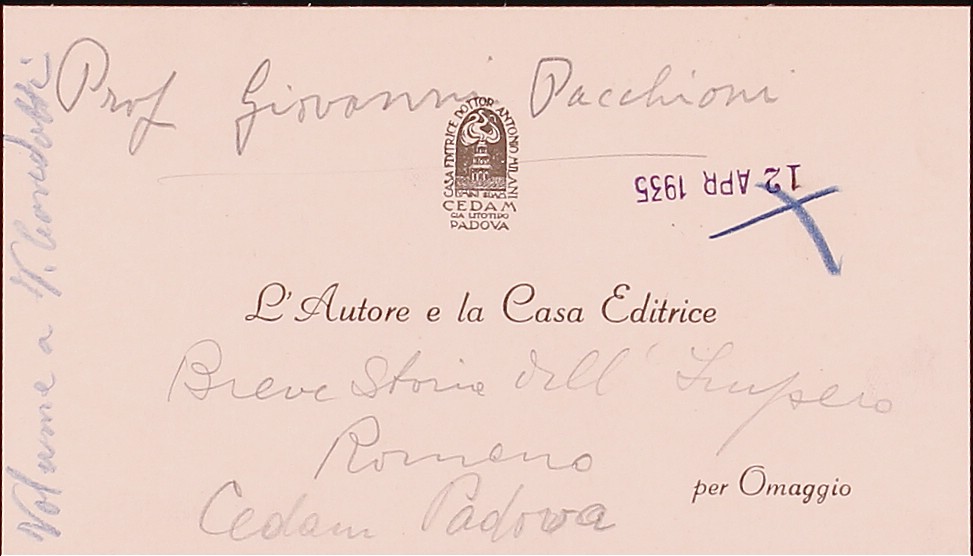 Prof Giovanni Pacchioni
CASA EDITRICE DOTTOR ANTONIO MILANI
CEDAM
GIÀ LITOTIPO
PADOVA
12 APR 1935
L'Autore e la Casa Editrice
Breve Storia dell' Impero
Romano
per Omaggio
Cedam Padova
Volume a